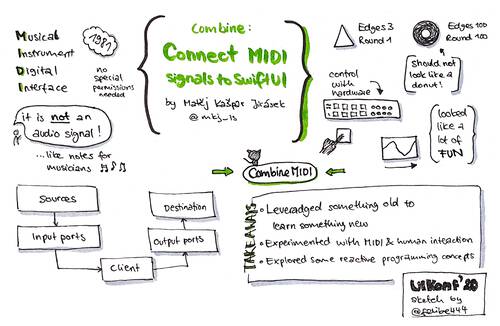 Musical
Instrument
Digital
Interface
1981
no
special
permissions
needed
it is not an
audio signal!
...like notes for
musicians
Combine:
Connect MIDI
signals to SwiftUI
by Matěj Kašpar Jirásek
@mkj_is
Edges 3
Round 1
Edges 100
Round 100
should not
look like a
donut!
control
with
hardware
looked
like a
lot of
FUN
CombineMIDI
Sources
Input ports
Client
Destination
Output ports
TAKEAWAYS
Leveradged something old to
learn something new
Experimented with MIDI & human interaction
Explored some reactive programming concepts
UIKonf'20
Sketch by
@felibe444